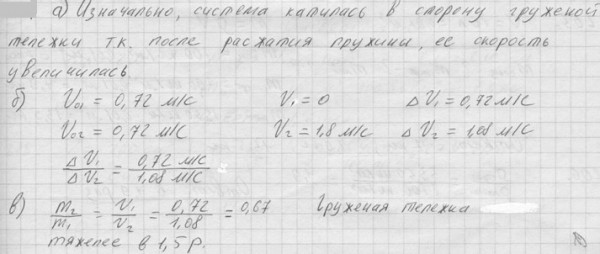 а) Изначально, система катилась в сторону груженой
тележки т.к. после расжатия пружины, ее скорость
увеличилась
б) V₀₁ = 0,72 м/с V₁ = 0 ΔV₁ = 0,72 м/с
V₀₂ = 0,72 м/с V₂ = 1,8 м/с ΔV₂ = 1,08 м/с
ΔV₁/ΔV₂ = 0,72 м/с / 1,08 м/с
в) m₂/m₁ = V₁/V₂ = 0,72/1,08 = 0,67 Груженая тележка
тяжелее в 1,5 р.